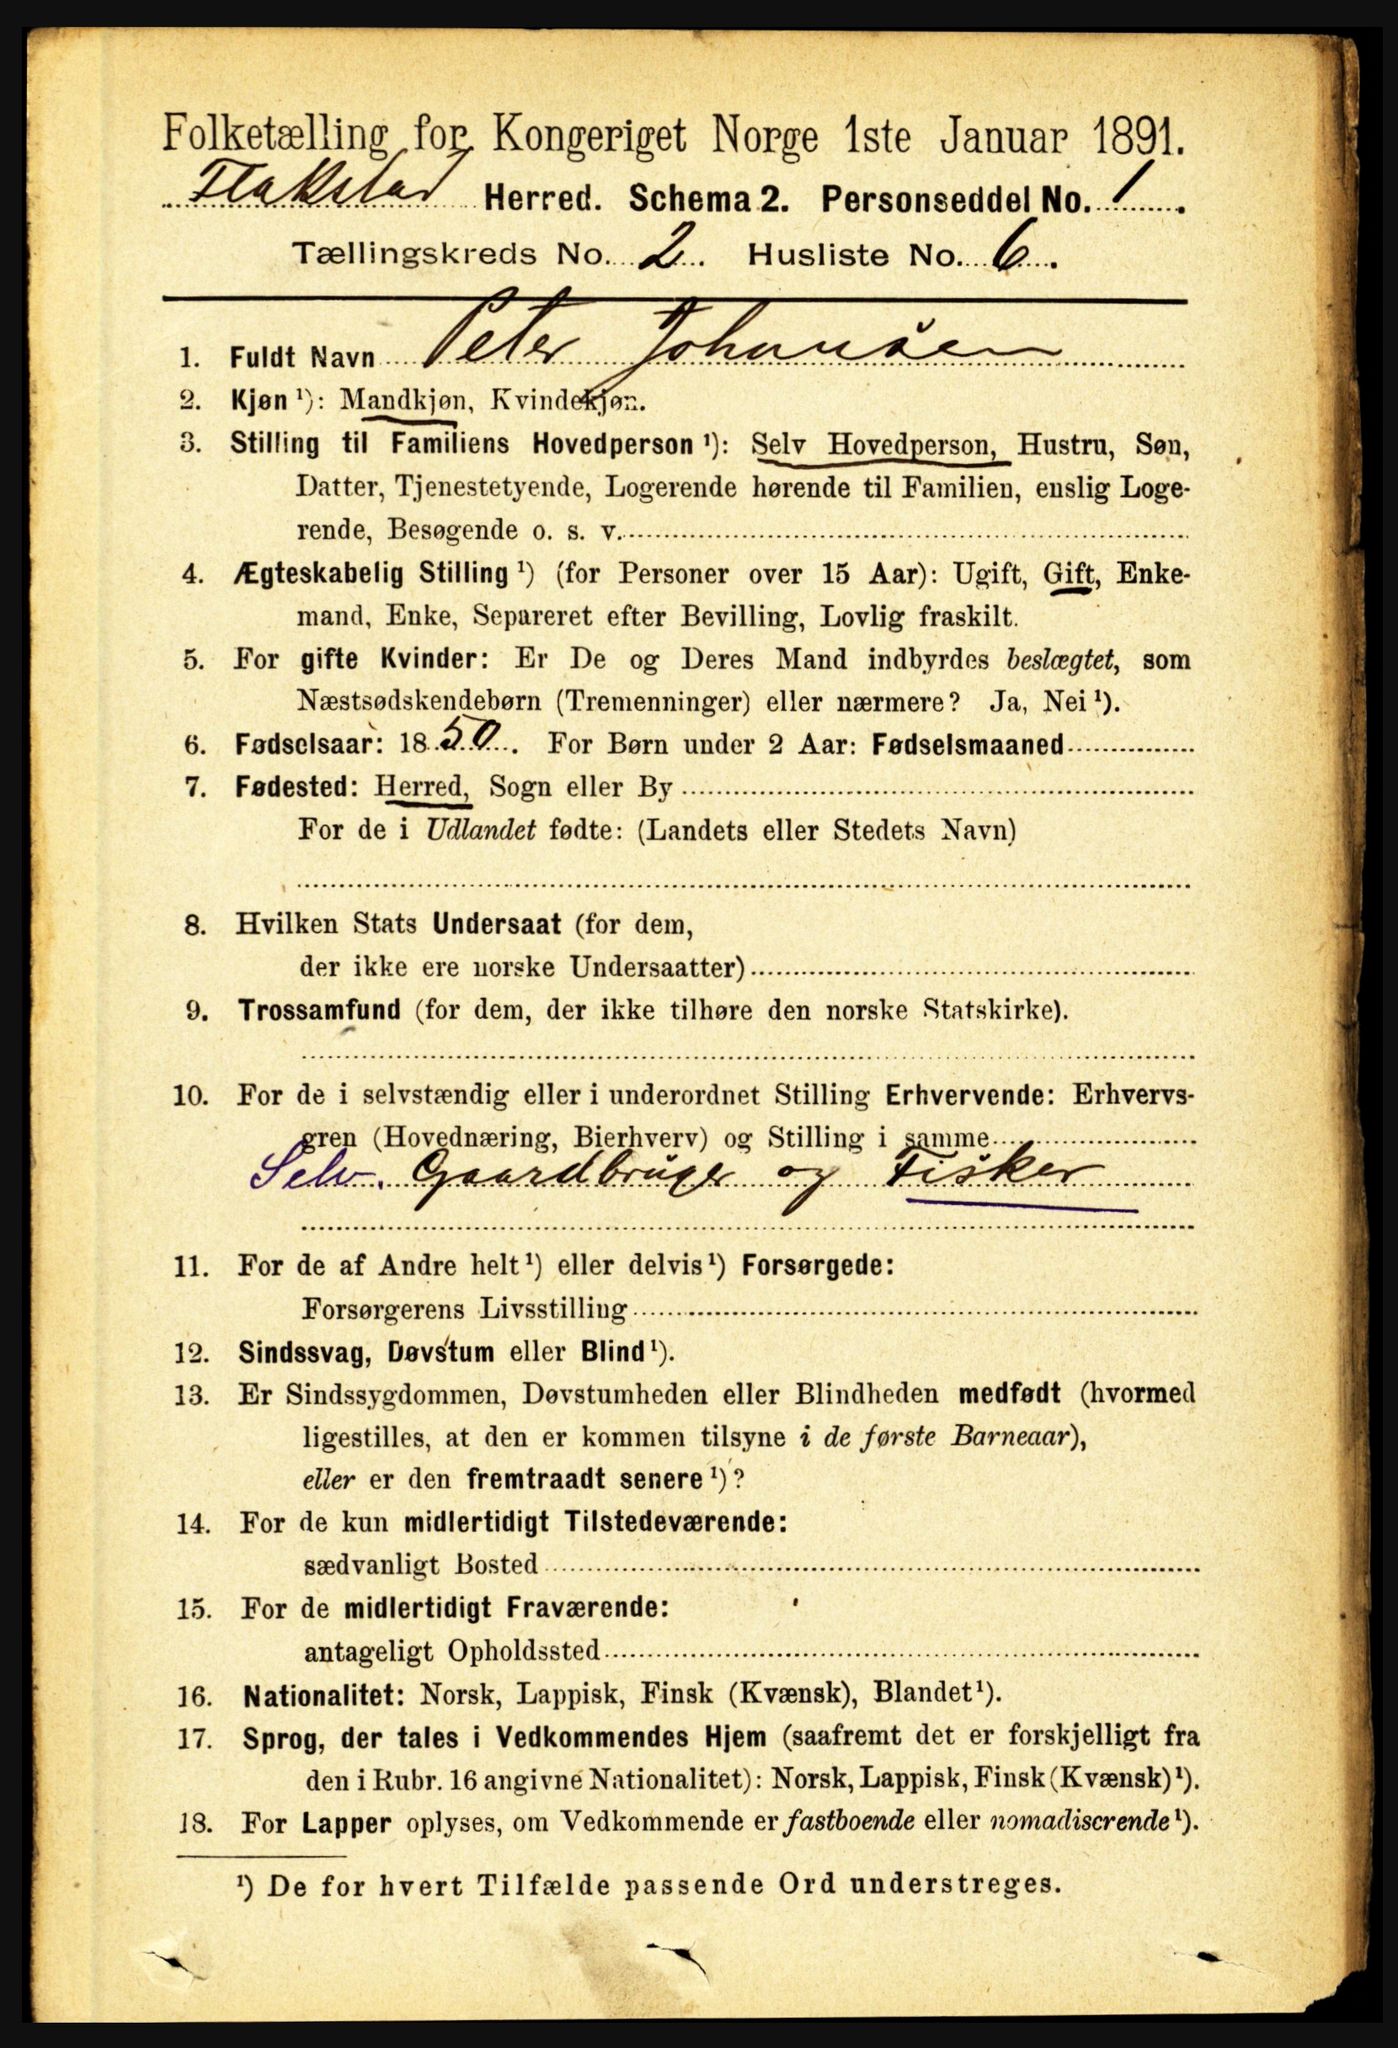 Folketælling for Kongeriget Norge 1ste Januar 1891.
Flakstad Herred. Schema 2. Personseddel No. 1.
Tællingskreds No. 2. Husliste No. 6.
1. Fuldt Navn Peter Johansen
2. Kjøn ¹): Mandkjøn, Kvindekjøn.
3. Stilling til Familiens Hovedperson ¹): Selv Hovedperson, Hustru, Søn,
Datter, Tjenestetyende, Logerende hørende til Familien, enslig Loge-
rende, Besøgende o. s. v.
4. Ægteskabelig Stilling ¹) (for Personer over 15 Aar): Ugift, Gift, Enke-
mand, Enke, Separeret efter Bevilling, Lovlig fraskilt.
5. For gifte Kvinder: Er De og Deres Mand indbyrdes beslægtet, som
Næstsødskendebørn (Tremenninger) eller nærmere? Ja, Nei ¹).
6. Fødselsaar: 1850. For Børn under 2 Aar: Fødselsmaaned
7. Fødested: Herred, Sogn eller By
For de i Udlandet fødte: (Landets eller Stedets Navn)
8. Hvilken Stats Undersaat (for dem,
der ikke ere norske Undersaatter)
9. Trossamfund (for dem, der ikke tilhøre den norske Statskirke).
10. For de i selvstændig eller i underordnet Stilling Erhvervende: Erhvervs-
gren (Hovednæring, Bierhverv) og Stilling i samme
Selv. Gaardbruger og Fisker
11. For de af Andre helt ¹) eller delvis ¹) Forsørgede:
Forsørgerens Livsstilling
12. Sindssvag, Døvstum eller Blind ¹).
13. Er Sindssygdommen, Døvstumheden eller Blindheden medfødt (hvormed
ligestilles, at den er kommen tilsyne i de første Barneaar),
eller er den fremtraadt senere ¹)?
14. For de kun midlertidigt Tilstedeværende:
sædvanligt Bosted
15. For de midlertidigt Fraværende:
antageligt Opholdssted
16. Nationalitet: Norsk, Lappisk, Finsk (Kvænsk), Blandet ¹).
17. Sprog, der tales i Vedkommendes Hjem (saafremt det er forskjelligt fra
den i Rubr. 16 angivne Nationalitet): Norsk, Lappisk, Finsk (Kvænsk) ¹).
18. For Lapper oplyses, om Vedkommende er fastboende eller nomadiserende ¹).
¹) De for hvert Tilfælde passende Ord understreges.